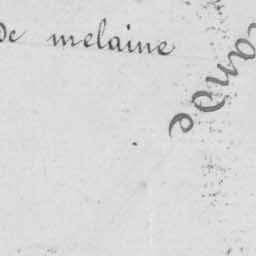 de melaine
ande